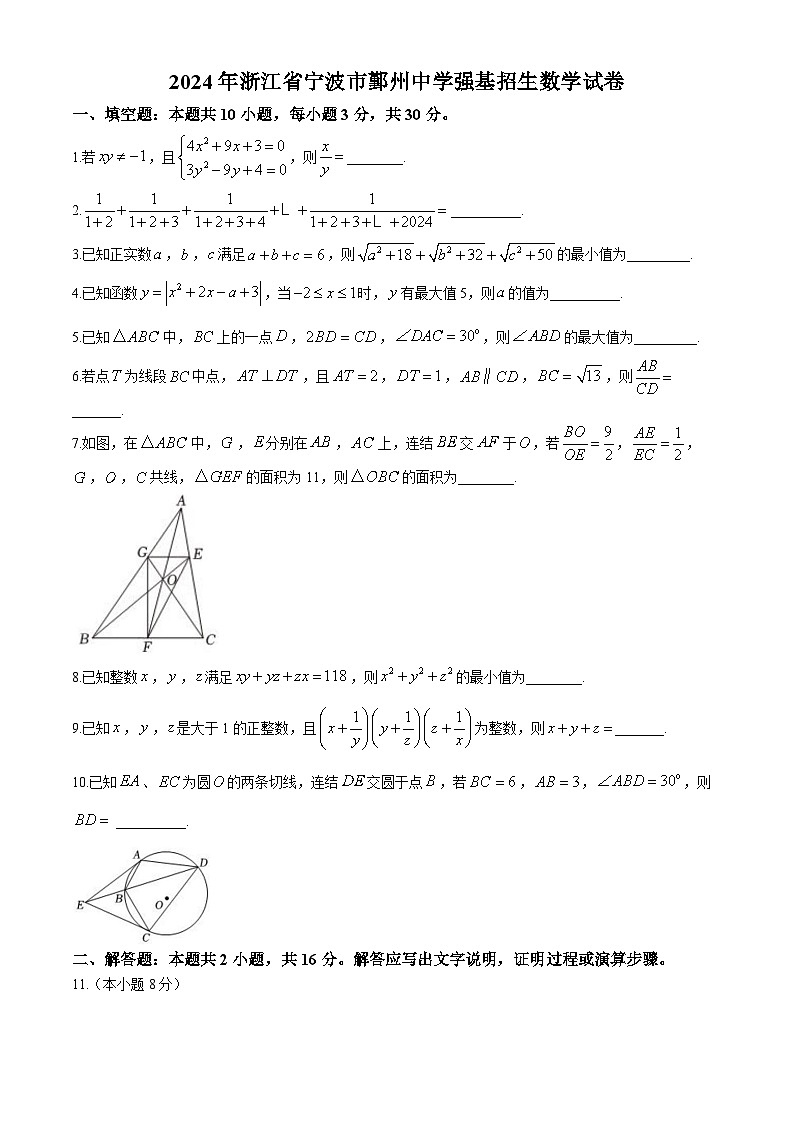 2024年浙江省宁波市鄞州中学强基招生数学试卷
一、填空题：本题共10小题，每小题3分，共30分。
1.若xy≠−1，且{4x²+9x+3=0, 3y²−9y+4=0，则x/y=________.
2. 1/(1+2)+1/(1+2+3)+1/(1+2+3+4)+L +1/(1+2+3+L +2024)=__________.
3.已知正实数a，b，c满足a+b+c=6，则√(a²+18)+√(b²+32)+√(c²+50)的最小值为_________.
4.已知函数y=|x²+2x−a+3|，当−2≤x≤1时，y有最大值5，则a的值为__________.
5.已知△ABC中，BC上的一点D，2BD=CD，∠DAC=30°，则∠ABD的最大值为_________.
6.若点T为线段BC中点，AT⊥DT，且AT=2，DT=1，AB∥CD，BC=√13，则AB/CD=
_______.
7.如图，在△ABC中，G，E分别在AB，AC上，连结BE交AF于O，若BO/OE=9/2，AE/EC=1/2，
G，O，C共线，△GEF的面积为11，则△OBC的面积为________.
A
G E
O
B F C
8.已知整数x，y，z满足xy+yz+zx=118，则x²+y²+z²的最小值为________.
9.已知x，y，z是大于1的正整数，且(x+1/y)(y+1/z)(z+1/x)为整数，则x+y+z=_______.
10.已知EA、EC为圆O的两条切线，连结DE交圆于点B，若BC=6，AB=3，∠ABD=30°，则
BD=__________.
A D
B
E O
C
二、解答题：本题共2小题，共16分。解答应写出文字说明，证明过程或演算步骤。
11.（本小题8分）